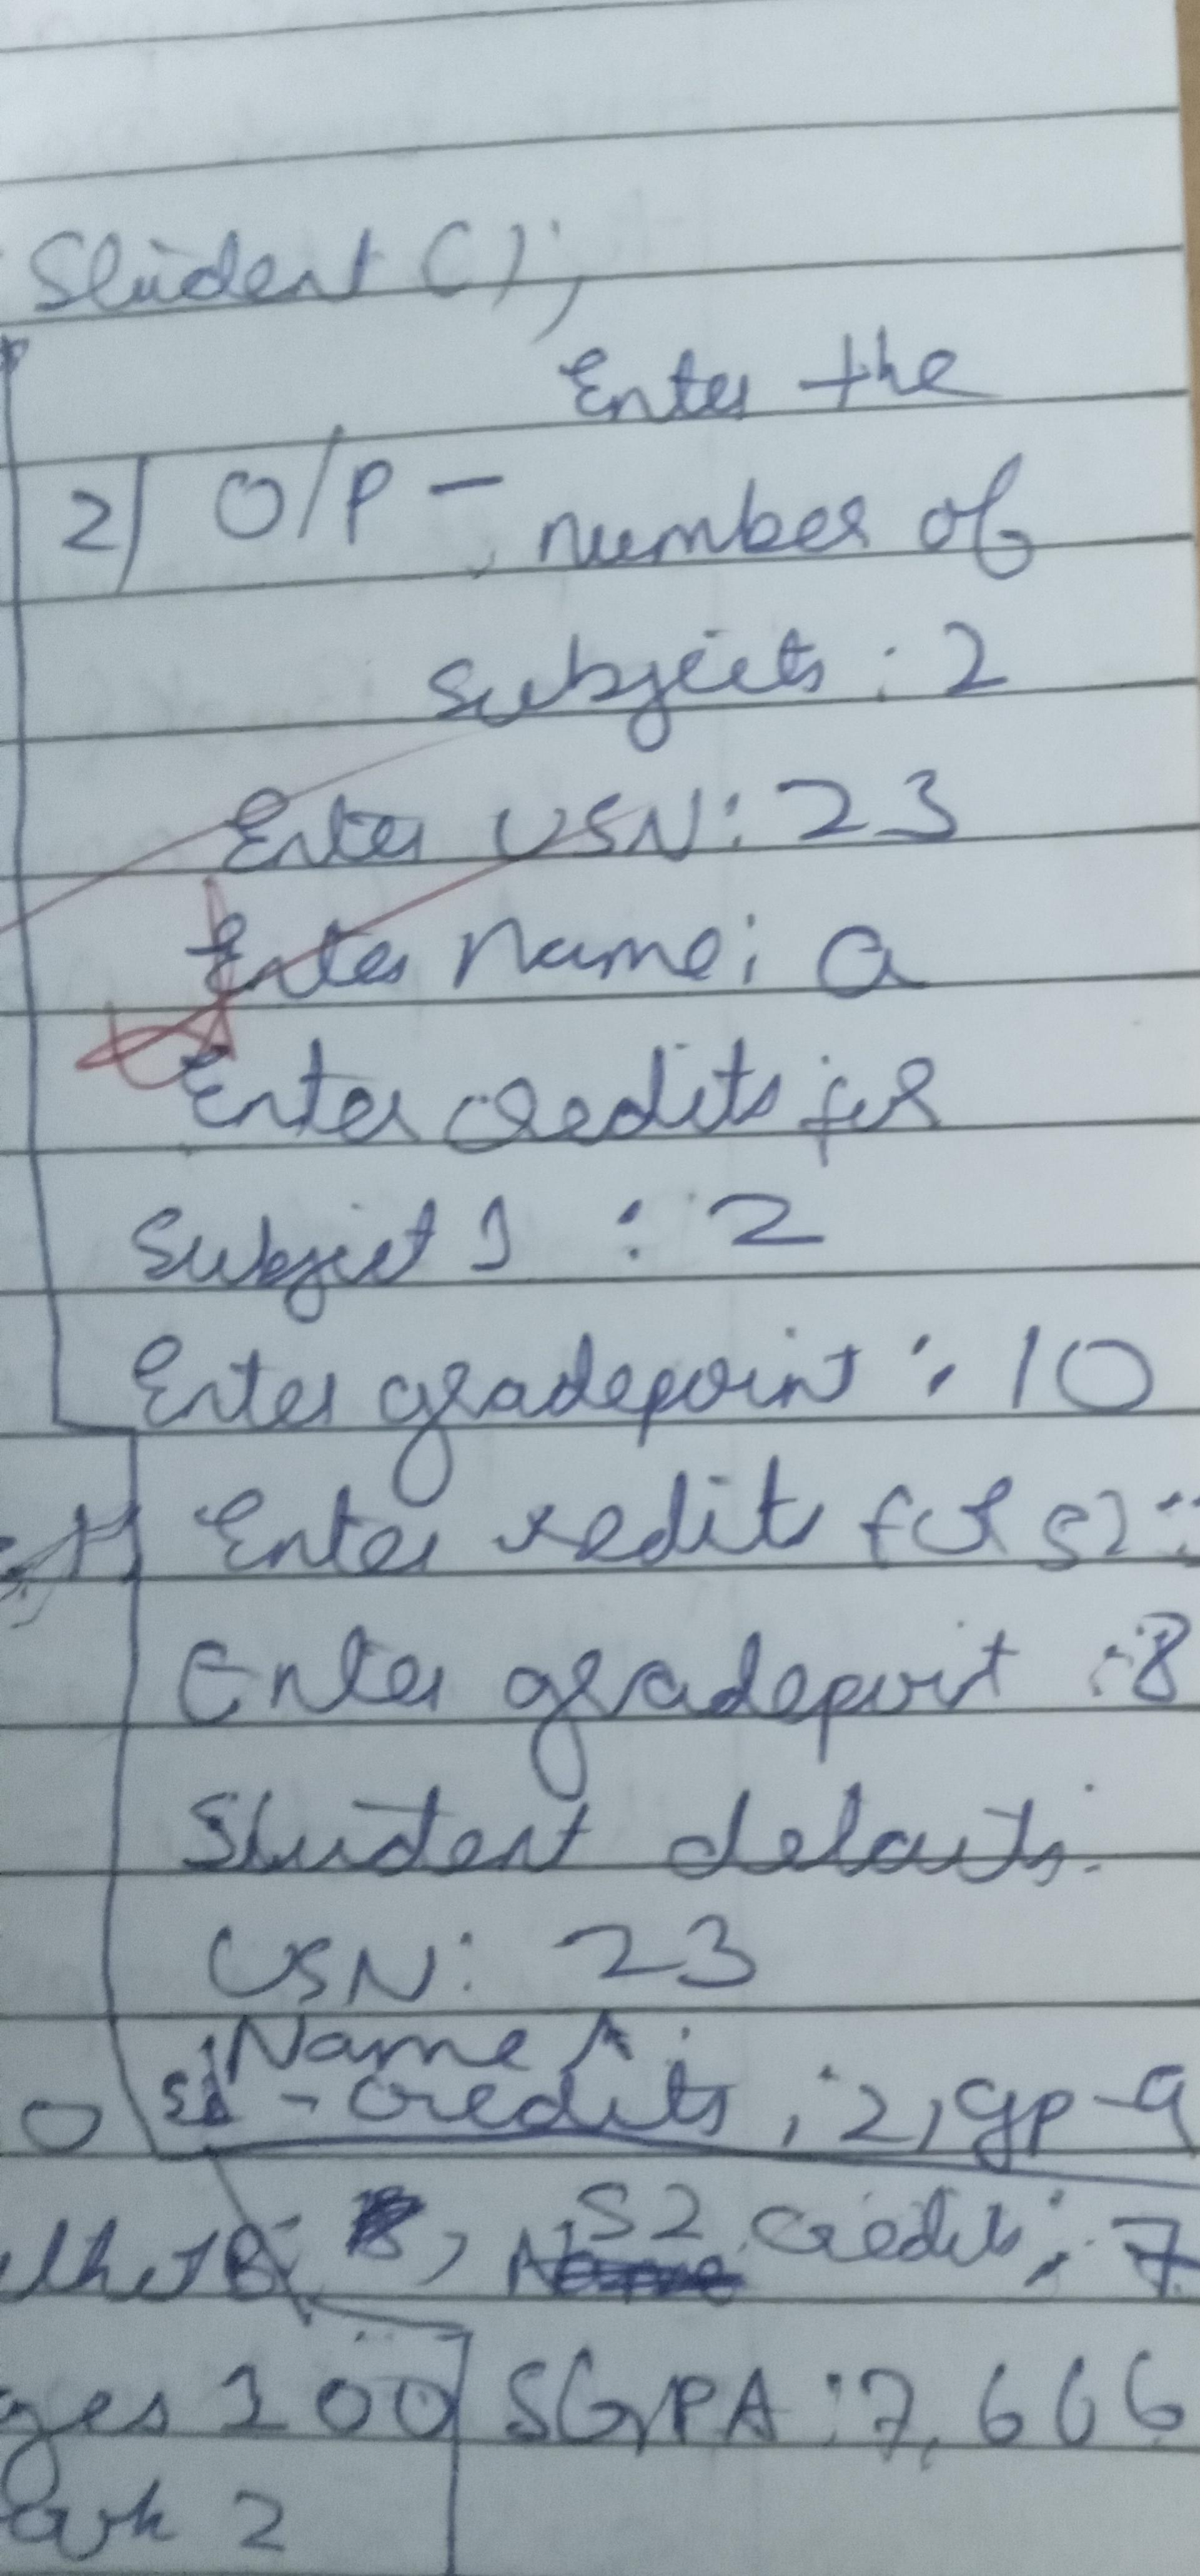 Student ();
Enter the
2) O/P - number of
Subjects : 2
Enter USN: 23
Enter Name: a
Enter credits for
Subject 1 : 2
Enter gradepoint : 10
Enter credits for S2:
Enter gradepoint : 8
Student details:
USN: 23
Name A:
S1 - credits : 2, gp-9
S2 Credits: 7
200 SGPA : 7.666
2